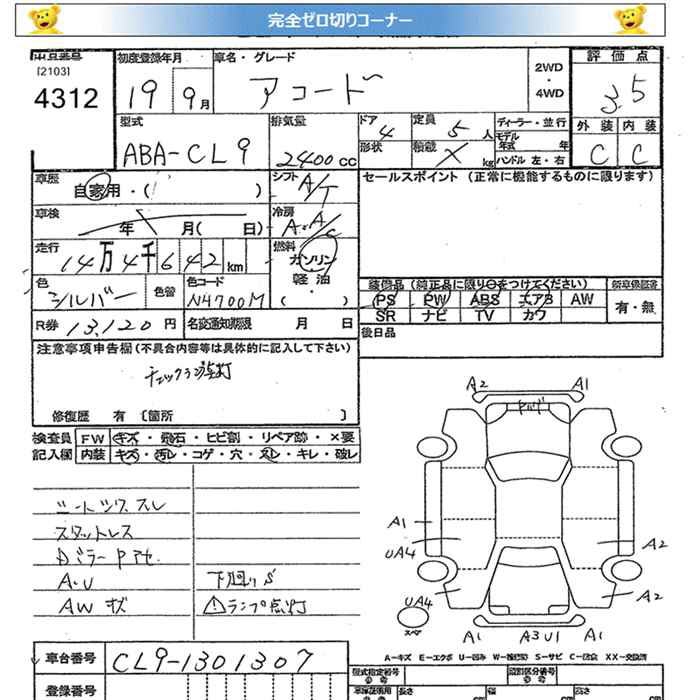 完全ゼロ切りコーナー
出品番号
[2103]
4312
初度登録年月
19 9月
車名・グレード
アコード
2WD
・
4WD
評価点
3.5
外装 内装
C C
型式
ABA-CL9
排気量
2400cc
ドア
4
形状
定員
5人
積載
kg
ディーラー・並行
モデル
年式 年
ハンドル 左・右
車歴
自家用・( )
シフト
A/T
セールスポイント (正常に機能するものに限ります)
車検
年 月( 日)
冷房
A・A/C
走行
14万4千642km
燃料
ガソリン
軽油
( ・ )
色
シルバー
色替
色コード
N4700M
装備品 (純正品に限り○をつけてください)
PS PW ABS エアB AW
SR ナビ TV カワ
新車保証書
有・無
R券 13,120円
名変通知期限 月 日
後日品
注意事項申告欄(不具合内容等は具体的に記入して下さい)
チェックランプ点灯
修復歴 有 〔箇所 〕
検査員 FW キズ・飛石・ヒビ割・リペア跡・×要
記入欄 内装 キズ・汚レ・コゲ・穴・スレ・キレ・破レ
シートシワスレ
スタットレス
Dミラー
A・U
AWキズ
下回りS
ランプ点灯
A2 A1
A1
UA4
A2
UA4
スペア
A2
A1 A3U1 A1
A-キズ E-エクボ U-凹み W-補修跡 S-サビ C-腐食 XX-交換済
車台番号 CL9-1301307
登録番号
型式指定番号
類別区分番号
長さ
幅
高さ